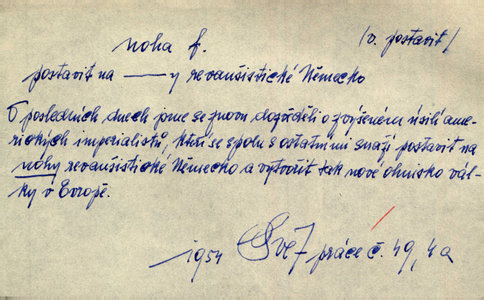 noha f. (v. postavit)
postavit na ——y revanšistické Německo
V posledních dnech jsme se znovu dozvěděli o zvýšeném úsilí ame-
rických imperialistů, kteří se spolu s ostatními snaží postavit na
nohy revanšistické Německo a vytvořit tak nové ohnisko vál-
ky v Evropě.
1954 Svět práce č. 49, 4a